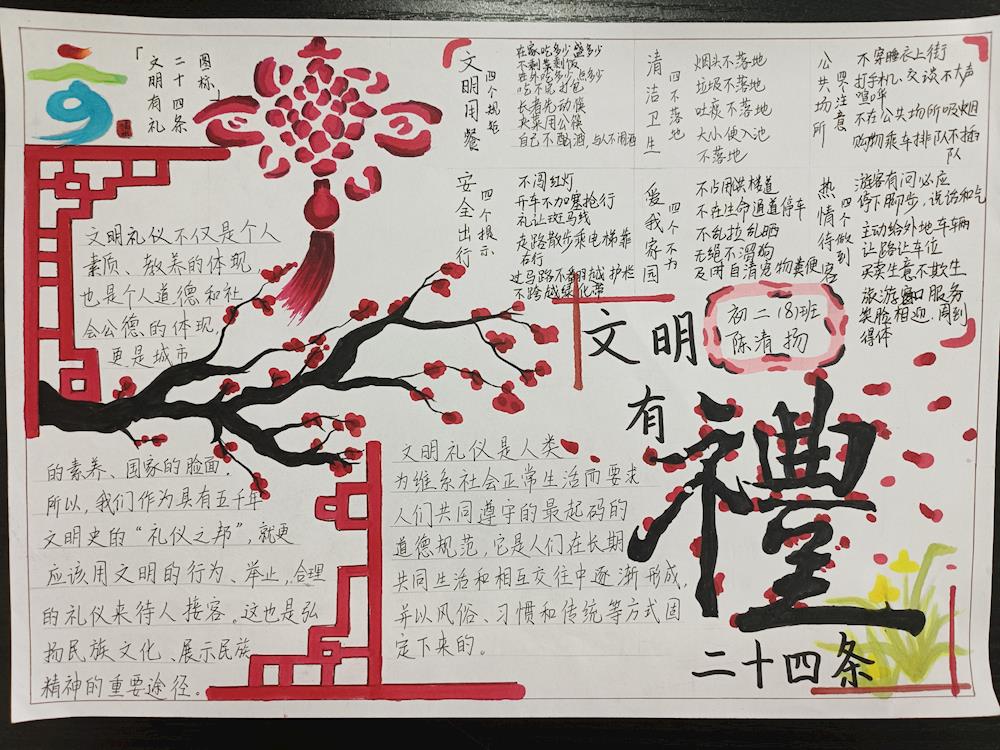 「文明有礼
二十四条
图标」
文明用餐
四个规矩
在家吃多少盛多少
不剩菜剩饭
在外吃多少点多少
吃不完打包
长者先动筷
夹菜用公筷
自己不酗酒,与人不闹酒
清洁卫生
四不落地
烟头不落地
垃圾不落地
吐痰不落地
大小便入池
不落地
公共场所
四个注意
不穿睡衣上街
打手机、交谈不大声
喧哗
不在公共场所吸烟
购物乘车排队不插
队
安全出行
四个提示
不闯红灯
开车不加塞抢行
礼让斑马线
走路散步乘电梯靠
右行
过马路不翻越护栏
不跨越绿化带
爱我家园
四个不为
不占用洪楼道
不在生命通道停车
不乱拉乱晒
无绳不溜狗
及时自清宠物粪便
热情待客
四个做到
游客有问必应
停下脚步,说话和气
主动给外地车辆
让路让车位
买卖生意不欺生
旅游窗口服务
笑脸相迎,周到
得体
文明礼仪不仅是个人
素质、教养的体现
也是个人道德和社
会公德的体现,
更是城市
的素养、国家的脸面.
所以,我们作为具有五千年
文明史的“礼仪之邦”,就更
应该用文明的行为、举止,合理
的礼仪来待人接客。这也是弘
扬民族文化、展示民族
精神的重要途径。
文明礼仪是人类
为维系社会正常生活而要求
人们共同遵守的最起码的
道德规范,它是人们在长期
共同生活和相互交往中逐渐形成,
并以风俗、习惯和传统等方式固
定下来的。
初二18班
陈清扬
文明
有
禮
二十四条